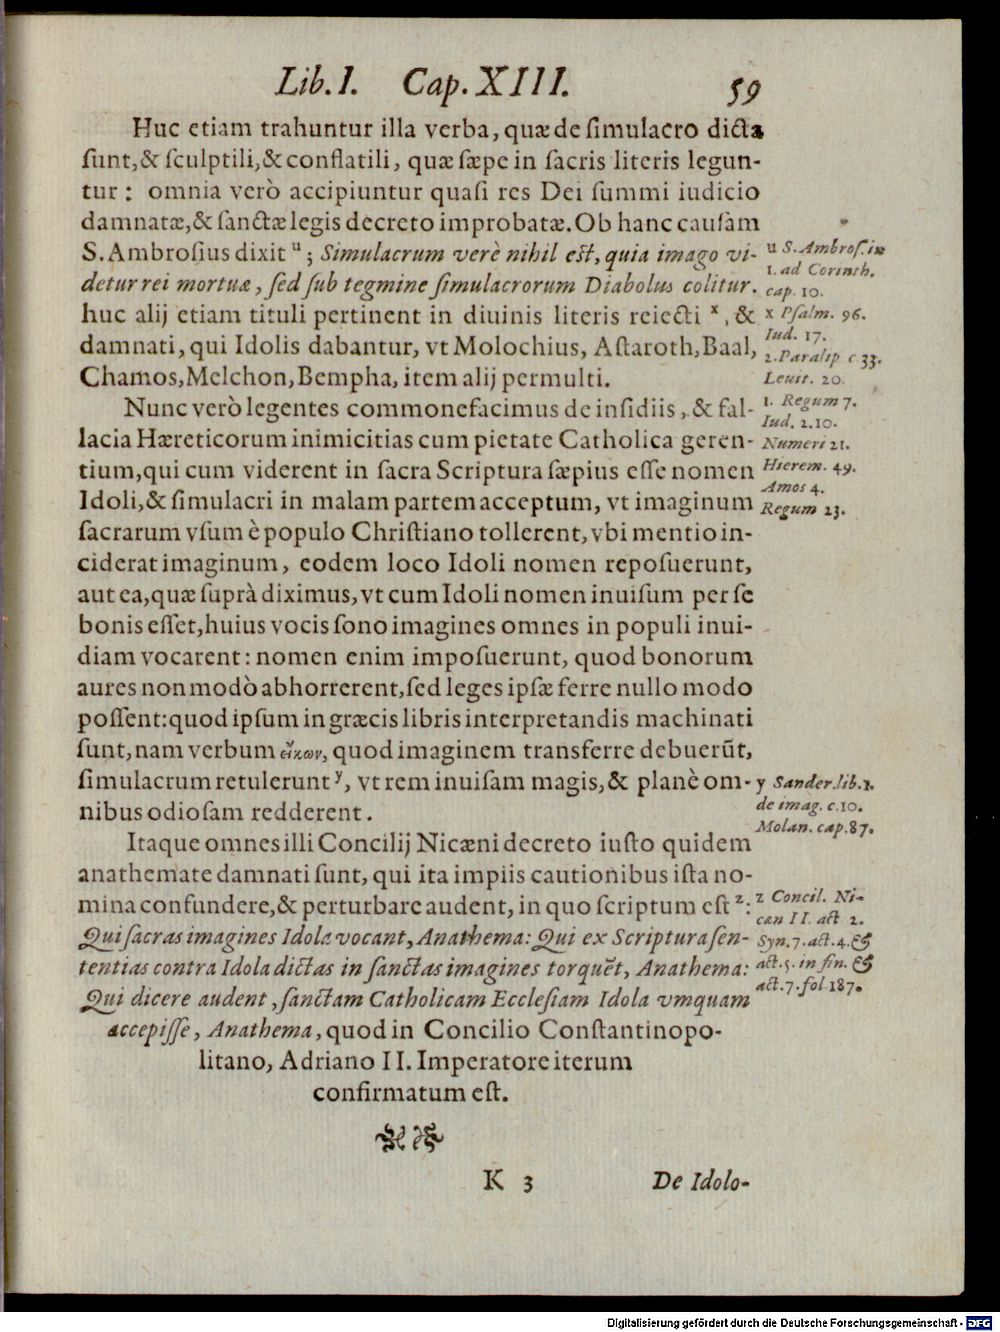 Lib. I. Cap. XIII. 59
Huc etiam trahuntur illa verba, quæ de ſimulacro dicta
ſunt, & ſculptili, & conflatili, quæ ſæpe in ſacris literis legun-
tur: omnia verò accipiuntur quaſi res Dei ſummi iudicio
damnatæ, & ſanctæ legis decreto improbatæ. Ob hanc cauſam
S. Ambroſius dixit u; Simulacrum verè nihil eſt, quia imago vi-
detur rei mortuæ, ſed ſub tegmine ſimulacrorum Diabolus colitur.
huc alij etiam tituli pertinent in diuinis literis reiecti x, &
damnati, qui Idolis dabantur, vt Molochius, Aſtaroth, Baal,
Chamos, Melchon, Bempha, item alij permulti.
Nunc verò legentes commonefacimus de inſidiis, & fal-
lacia Hæreticorum inimicitias cum pietate Catholica geren-
tium, qui cum viderent in ſacra Scriptura ſæpius eſſe nomen
Idoli, & ſimulacri in malam partem acceptum, vt imaginum
ſacrarum vſum è populo Chriſtiano tollerent, vbi mentio in-
ciderat imaginum, eodem loco Idoli nomen repoſuerunt,
aut ea, quæ ſuprà diximus, vt cum Idoli nomen inuiſum per ſe
bonis eſſet, huius vocis ſono imagines omnes in populi inui-
diam vocarent: nomen enim impoſuerunt, quod bonorum
aures non modò abhorrerent, ſed leges ipſæ ferre nullo modo
poſſent: quod ipſum in græcis libris interpretandis machinati
ſunt, nam verbum εἴκων, quod imaginem transferre debuerūt,
ſimulacrum retulerunt y, vt rem inuiſam magis, & planè om-
nibus odioſam redderent.
Itaque omnes illi Concilij Nicæni decreto iuſto quidem
anathemate damnati ſunt, qui ita impiis cautionibus iſta no-
mina confundere, & perturbare audent, in quo ſcriptum eſt z:
Qui ſacras imagines Idola vocant, Anathema: Qui ex Scriptura ſen-
tentias contra Idola dictas in ſanctas imagines torquēt, Anathema:
Qui dicere audent, ſanctam Catholicam Eccleſiam Idola vmquam
accepiſſe, Anathema, quod in Concilio Conſtantinopo-
litano, Adriano II. Imperatore iterum
confirmatum eſt.
K 3 De Idolo-
u S. Ambroſ. in
1. ad Corinth.
cap. 10.
x Pſalm. 96.
Iud. 17.
2. Paralip c. 33.
Leuit. 20.
1. Regum 7.
Iud. 2. 10.
Numeri 21.
Hierem. 49.
Amos 4.
Regum 23.
y Sander. lib. 1.
de imag. c. 10.
Molan. cap. 87.
z Concil. Ni-
cæn II. act 2.
Syn. 7. act. 4. &
act. 5. in fin. &
act. 7. fol 187.
Digitalisierung gefördert durch die Deutsche Forschungsgemeinschaft - DFG